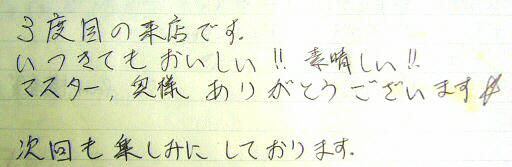 3度目の来店です.
いつきても おいしい!! 素晴しい!!
マスター, 奥様 ありがとうございます
次回も楽しみに しております.